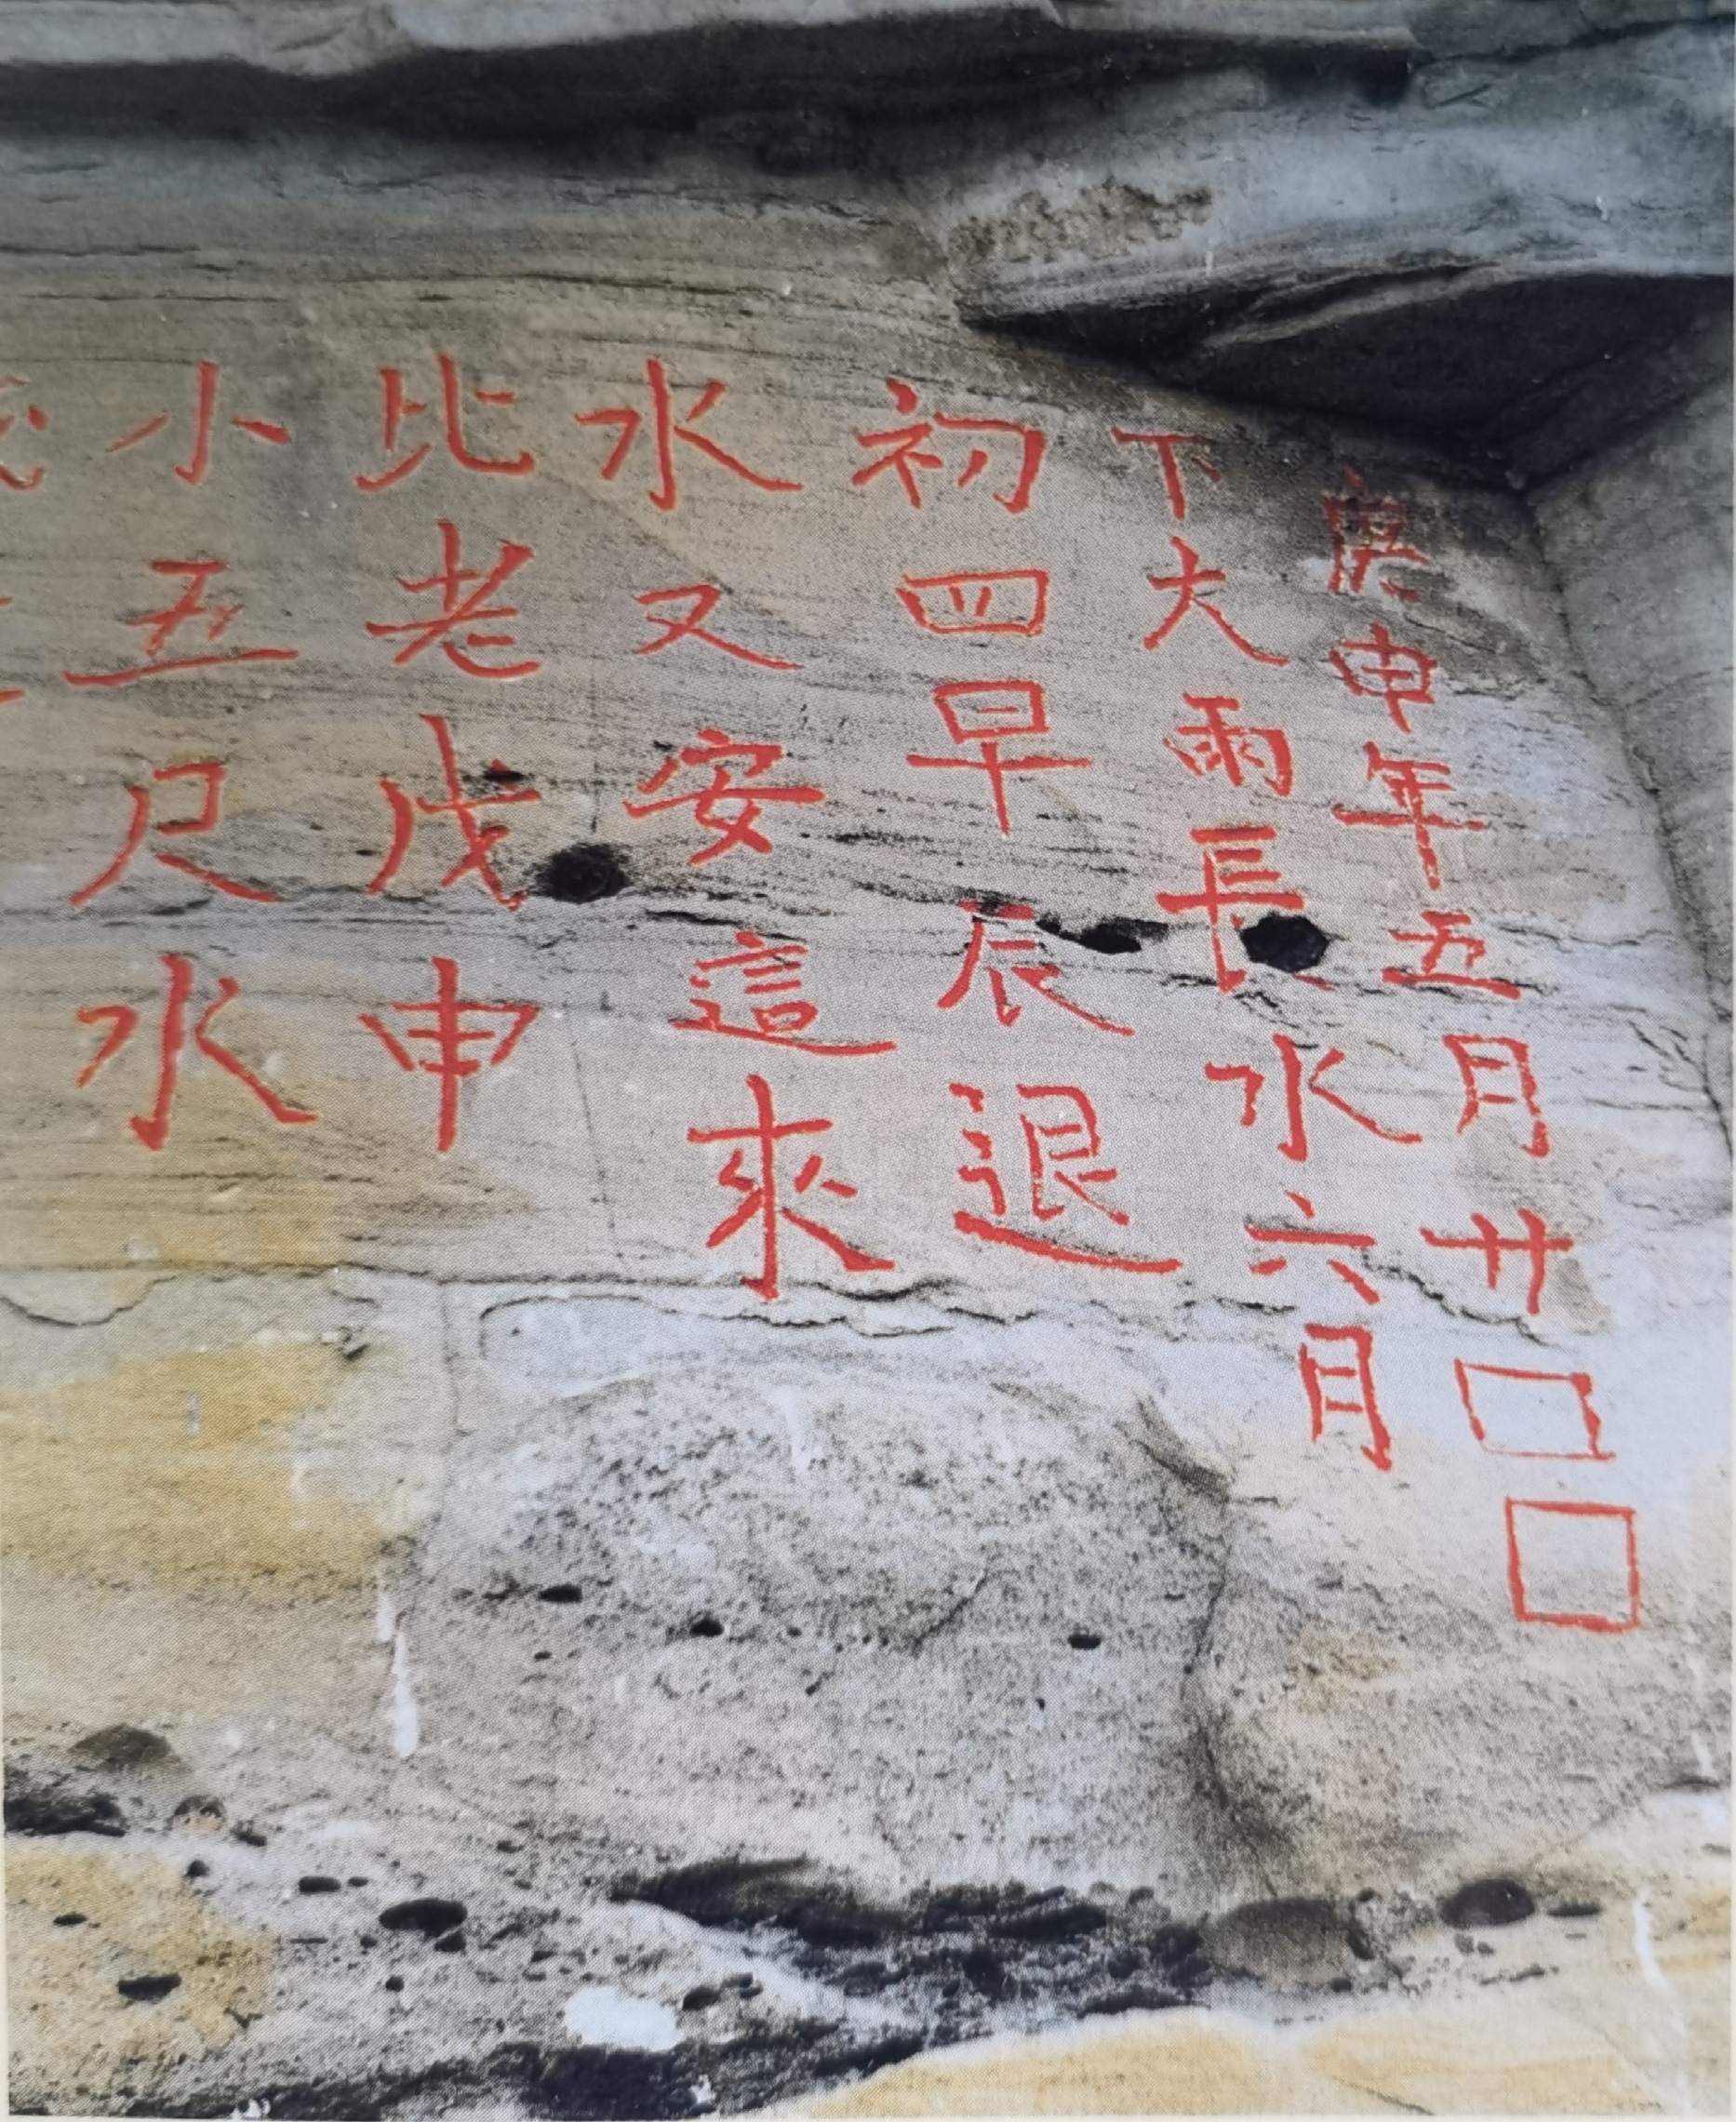 庚申年五月廿□□
下大雨長水六月
初四早辰退
水又安這來
比老戊申
小五尺水